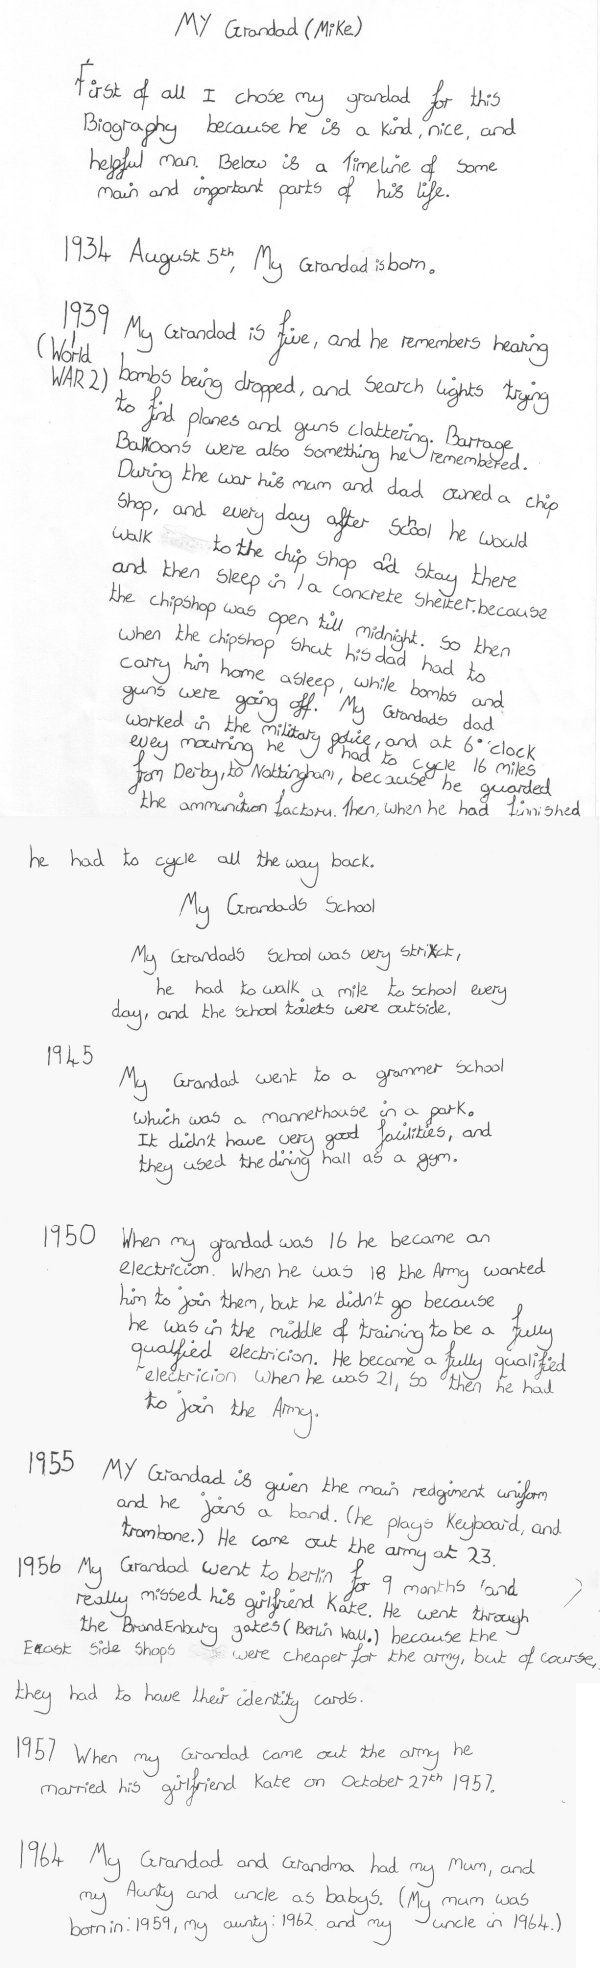 MY Grandad (Mike)
First of all I chose my grandad for this
Biography because he is a kind, nice, and
helpful man. Below is a Timeline of some
main and important parts of his life.
1934 August 5th, My Grandad is born.
1939 My Grandad is five, and he remembers hearing
(World
WAR 2) bombs being dropped, and search lights trying
to find planes and guns clattering. Barrage
Balloons were also something he remembered.
During the war his mum and dad owned a chip
shop, and every day after school he would
walk to the chip shop and stay there
and then sleep in / a concrete shelter. because
the chipshop was open till midnight. so then
when the chipshop shut his dad had to
carry him home asleep, while bombs and
guns were going off. My Grandads dad
worked in the military police, and at 6o'clock
evey mourning he had to cycle 16 miles
from Derby, to Nottingham, because he guarded
the ammunition factory. Then, when he had finnished
he had to cycle all the way back.
My Grandads School
My Grandads school was very strict,
he had to walk a mile to school every
day, and the school toilets were outside.
1945
My Grandad went to a grammer school
which was a mannerhouse in a park.
It didn't have very good facilities, and
they used the dining hall as a gym.
1950 When my grandad was 16 he became an
electricion. When he was 18 the Army wanted
him to join them, but he didn't go because
he was in the middle of training to be a fully
qualfied electricion. He became a fully qualified
electricion when he was 21, so then he had
to join the Army.
1955 MY Grandad is given the main redgiment uniform
and he joins a band. (he plays Keyboard, and
trombone.) He came out the army at 23.
1956 My Grandad went to berlin for 9 months and
really missed his girlfriend Kate. He went through
the BrandEnburg gates (Berlin Wall.) because the
East side shops were cheaper for the army, but of course,
they had to have their identity cards.
1957 When my Grandad came out the army he
married his girlfriend Kate on October 27th 1957.
1964 My Grandad and Grandma had my Mum, and
my Aunty and uncle as babys. (My mum was
born in: 1959, my aunty: 1962 and my uncle in 1964.)